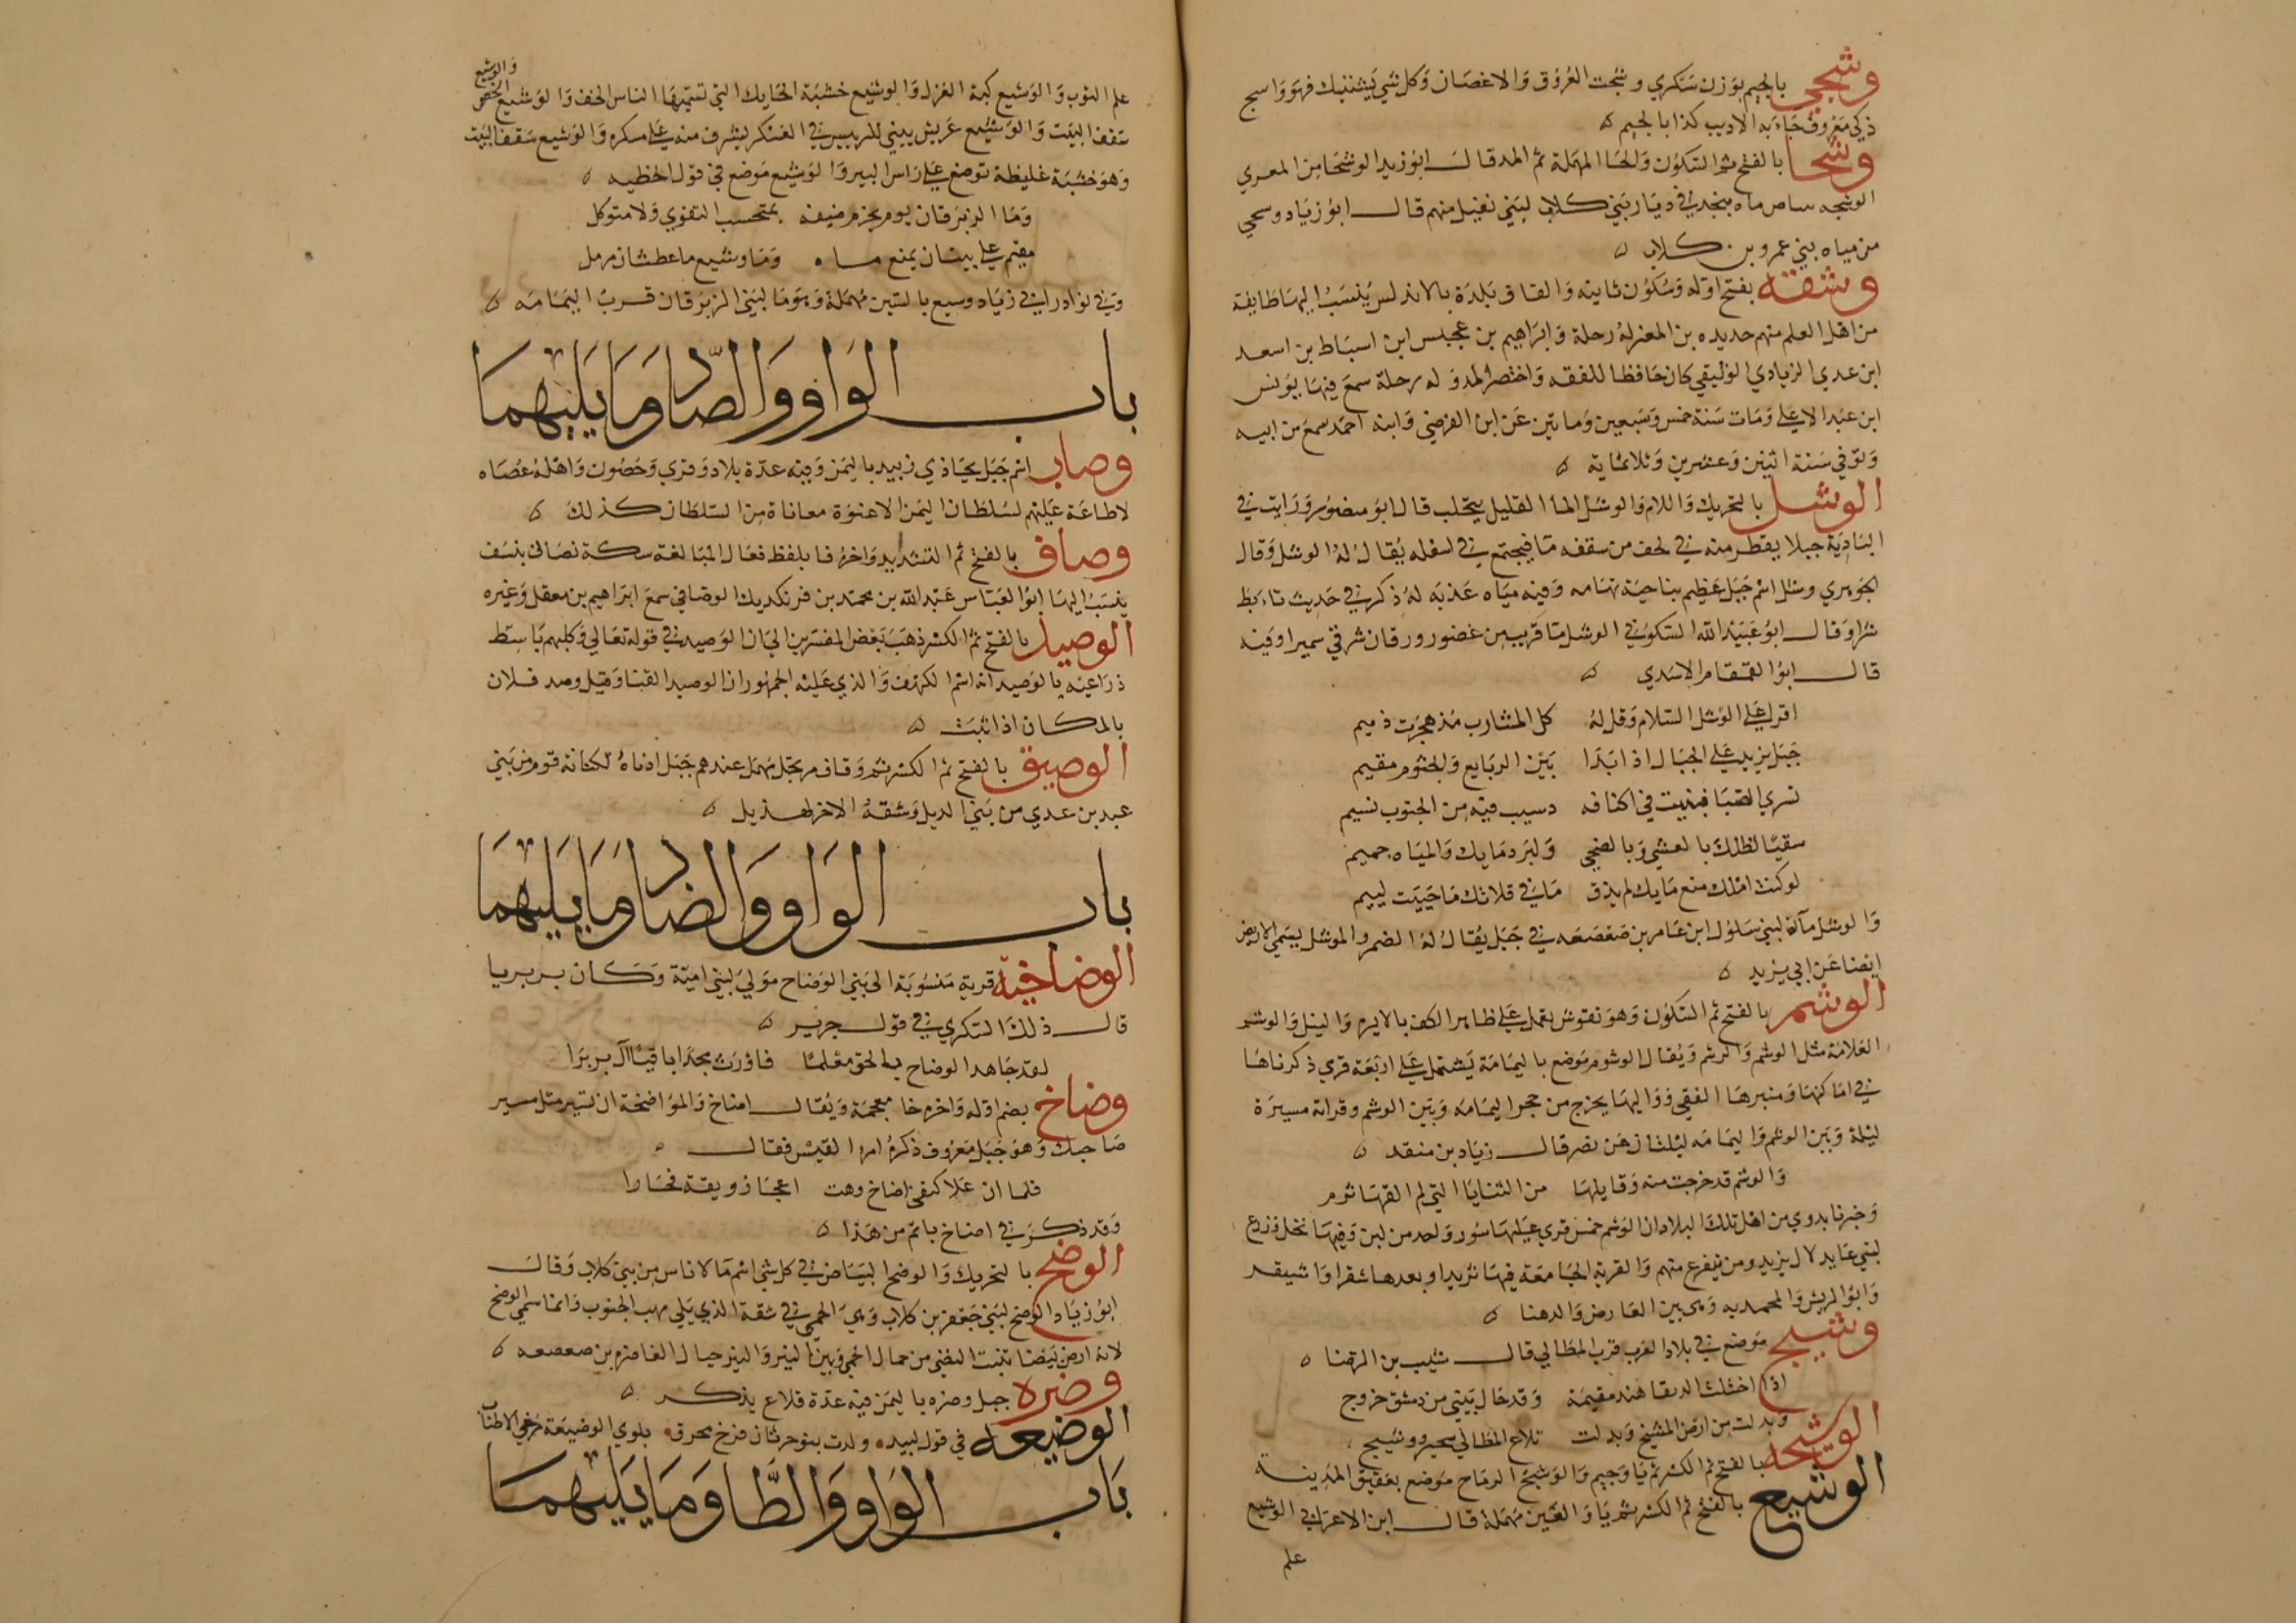 وشجي بالجيم بوزن سكري وشجت العروق والاغصان وكل شي يشتبك فهو واسج
ذكي معروف جاء به الاديب كذا بالجيم
وشحا بالفتح ثم السكون والحا المهملة ثم المد قال ابو زيد الوشحا من المعري
الوشحه بياض ماه بنجد في ديار بني كلاب لبني نفيل منهم قال ابو زياد وسحي
من مياه بني عمرو بن كلاب
وشقه بفتح اوله وسكون ثانيه والقاف بلدة بالاندلس ينسب اليها طايفة
من اهل العلم منهم حديده بن المعز له رحلة وابراهيم بن عجبلس ابن اسباط بن اسعد
ابن عدي الزيادي الوليقي كان حافظا للفقه واختصر المدو له رحلة سمع فيها يونس
ابن عبد الاعلي ومات سنة خمس وسبعين وماتين عن ابن الفرضي وابنه احمد سمع من ابيه
وتوفي سنة اثنين وعشرين وثلاثماية
الوشل بالتحريك واللام والوشل الما القليل يتحلب قال ابو منصور ورايت في
البادية جبلا يقطر منه في لحف من سقفه ما فيجتمع في اسفله يقال له الوشل وقال
الجوهري وشل اسم جبل عظيم بناحية تهامه وفيه مياه عذبه له ذكر في حديث تابط
شرا وقال ابو عبيد الله السكوني الوشل ما قريب من غضور ورقان شرقي سميرا وفيه
قال ابو القمقام الاسدي
اقرا علي الوشل السلام وقل له كل المشارب مذ هجرت ذميم
جبل يزيد علي الجبال اذا بدا بين الربايع والجثوم مقيم
تسري الصبا فتبيت في اكنافه وسيب فيه من الجنوب نسيم
سقيا لظلك بالعشي وبالضحي ولبرد مايك والمياه حميم
لو كنت املك منع مايك لم يذق ما في قلاتك ما حييت لييم
والوشل ماآن لبني سلول ابن عامر بن صعصعه في جبل يقال له الضمر والموشل يسمي الاريض
ايضا عن ابي يزيد
الوشم بالفتح ثم السكون وهو نقوش تعمل علي ظاهر الكف بالابرم والنيل والوشم
العلامة مثل الوشم والرشم ويقال الوشوم موضع باليمامة يشتمل علي اربعة قري ذكرناها
في اماكنها ومنبرها الفقي واليها يخرج من حجر اليمامه وبين الوشم وقراه مسيرة
ليلة وبين الوشم واليمامه ليلتان عن نصر قال زياد بن منقد
والوشم قد خرجت منه وقابلها من الثنايا التي لم القها ثرم
وخبرنا بدوي من اهل تلك البلاد ان الوشم خمس قري عليها سور واحد من لبن وفيها نخل وزرع
لبني عايد لال يزيد ومن يتفرع منهم والقرية الجامعة فيها ثريدا وبعدها شقرا واشيقد
وابو الريش والمحمديه وهي بين العارض والدهنا
وشيج موضع في بلاد العرب قرب المطالي قال شبيب بن البرصا
اذا احتلت الدنقا هند مقيمة وقد حال بيني من دمشق خروج
وبدلت من ارض الشيخ وبدلت تلاع المطالي سحبر ووشيج
الوشيحه بالفتح ثم الكسر ثم يا وجيم والوشيج الرماح موضع بعقيق المدينة
الوشيع بالفتح ثم الكسر ثم يا والعين مهملة قال ابن الاعرابي الوشيع
علم
علم الثوب والوشيع كبة الغزل والوشيع خشبة الحايك التي تسميها الناس الحف والوشيع الخص
والوشيع
سقف البيت والوشيع عريش يبني للرييس في العسكر يشرف منه علي عسكره والوشيع سقف البيت
وهو خشبة غليظة توضع علي راس البير والوشيع موضع في قول الحطيه
وما الزبرقان يوم يحرم ضيفه بمحتسب التقوي ولا متوكل
مقيم علي بينان يمنع ماه وما وشيع ما عطشان مرمل
وفي نوادر ابي زياه وسيع بالسين مهملة وهو ما لبني الزبرقان قرب اليمامه
باب الواو والصاد وما يليهما
وصاب اسم جبل يحاذي زبيد باليمن وفيه عدة بلاد وقري وحصون واهله عصاه
لا طاعة عليهم لسلطان اليمن الا عنوة معاناة من السلطان كذلك
وصاف بالفتح ثم التشديد واخره فا بلفظ فعال المبالغة سكة نصافي بنسف
ينسب اليها ابو العباس عبد الله بن محمد بن فرنكديك الوصافي سمع ابراهيم بن معقل وغيره
الوصيد بالفتح ثم الكسر ذهب بعض المفسرين الي ان الوصيد في قوله تعالي وكلبهم باسط
ذراعيه بالوصيد انه اسم الكهف والذي عليه الجمهور ان الوصيد الفنا وقيل وصد فلان
بالمكان اذا ثبت
الوصيق بالفتح ثم الكسر ثم وقاف مرتجل مهمل عندهم جبل ادناه لكنانه قوم من بني
عبد بن عدي من بني الديل وشقه الاخر لهذيل
باب الواو والضاد وما يليهما
الوضاخيه قرية منسوبة الي بني الوضاح مولي لبني امية وكان بربريا
قال ذلك السكري في قول جرير
لقد جاهد الوضاح بالحق معلما فاورث مجدا باقيا آل بربرا
وضاخ بضم اوله واخره خا معجمة ويقال اضاخ والمواضخة ان تسير مثل مسير
صاحبك وهو جبل معروف ذكره امرا القيس فقال
فلما ان علا كنفي اضاخ وهت اعجاز ويقه فحارا
وقد ذكر في اضاخ باتم من هذا
الوضح بالتحريك والوضح البياض في كل شي اسم ما لاناس من بني كلاب وقال
ابو زياد الوضح لبني جعفر بن كلاب وهي الحمي في شقه الذي يلي مهب الجنوب وانما سمي الوضح
لانه ارض بيضا تنبت النضي من حمال الحمي وبين النير والنير حيال الغاضره بن صعصعه
وضره جبل وضره باليمن فيه عدة قلاع يذكر
الوضيعه في قول لبيد ولدت بنو حرثان فرخ محرق بلوي الوضيعة مرخي الاطناب
باب الواو والطا وما يليهما